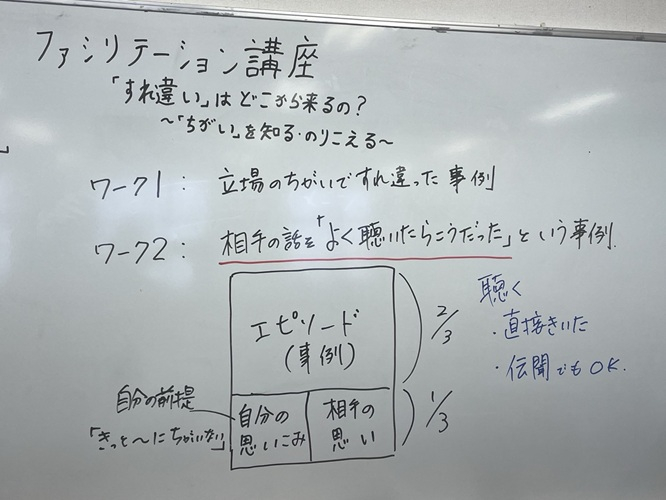 ファシリテーション講座
「すれ違い」はどこから来るの？
～「ちがい」を知る・のりこえる～
ワーク1： 立場のちがいですれ違った事例
ワーク2： 相手の話を「よく聴いたらこうだった」という事例.
エピソード
(事例)
2/3
聴く
・直接きいた
・伝聞でもOK.
自分の前提
「きっと～にちがいない」
自分の
思いこみ
相手の
思い
1/3